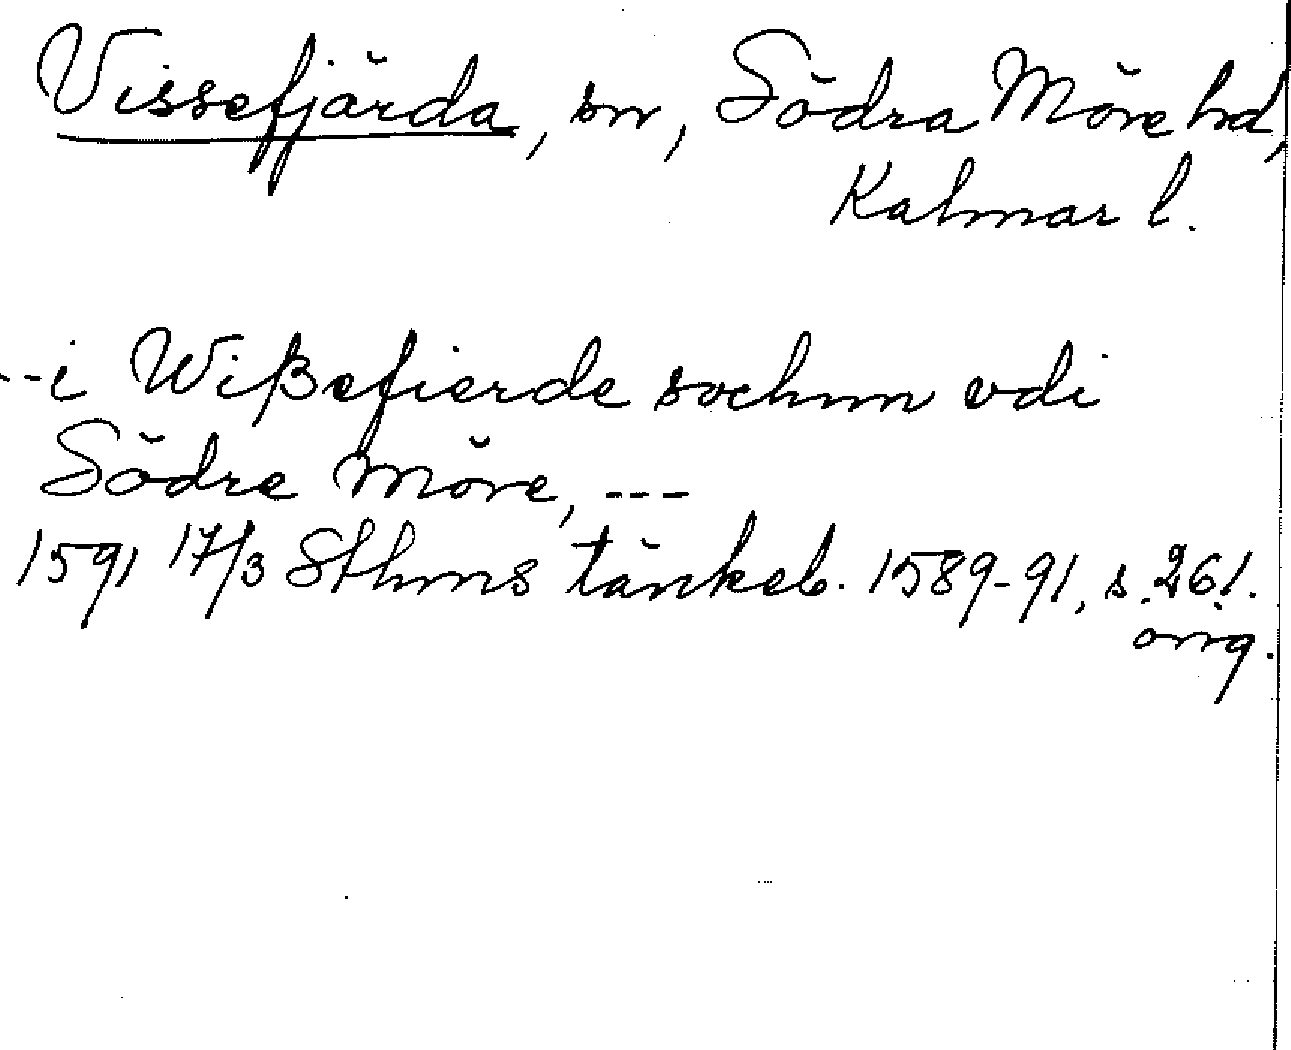 Vissefjärda, sn, Södra Möre hd,
Kalmar l.
--i Wißefierde sochnn vdi
Södre Möre, ---
1591 17/3 Sthms tänkeb. 1589-91, s. 261.
orig.